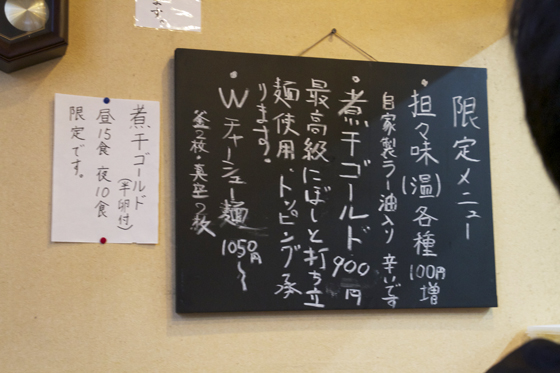 限定メニュー
担々味(温)各種100円増
自家製ラー油入り 辛いです
・煮干ゴールド 900円
最高級にぼしと打ち立
麺使用、トッピング承
ります。
・Wチャーシュー麺 1050円〜
釜2枚・真空2枚
煮干ゴールド
(半卵付)
昼15食 夜10食
限定です。
ます。